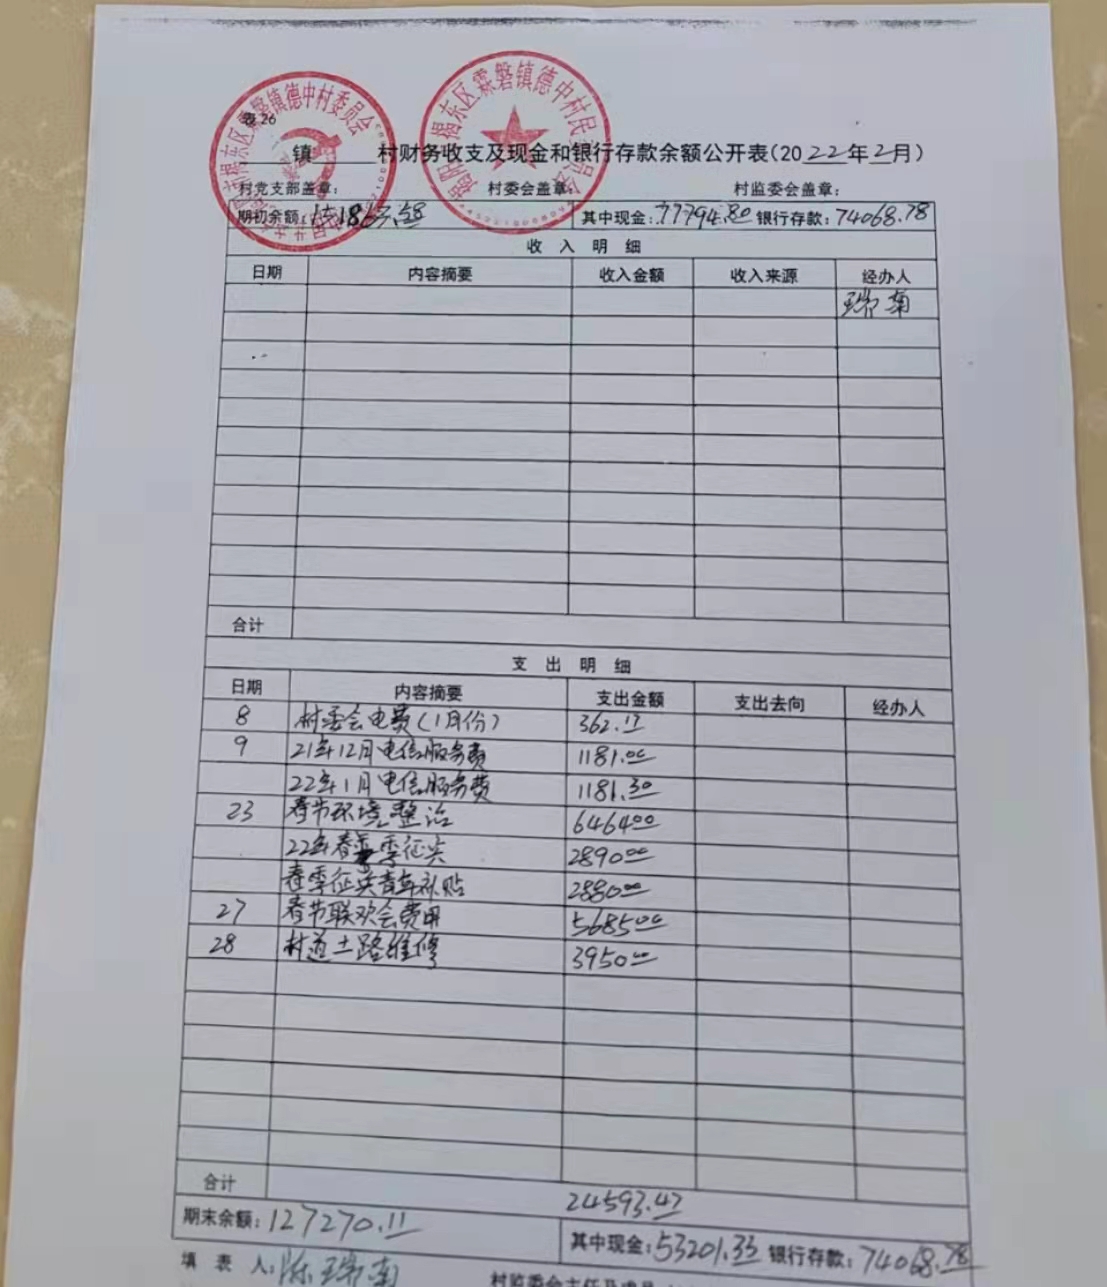 市揭东区霖磐镇德中村委员会
揭东区霖磐镇德中村民委员会
表26
镇 村财务收支及现金和银行存款余额公开表(2022年2月)
村党支部盖章: 村委会盖章: 村监委会盖章:
期初余额:151863.58 其中现金:77794.80 银行存款:74068.78
收 入 明 细
日期 内容摘要 收入金额 收入来源 经办人
瑞南
合计
支 出 明 细
日期 内容摘要 支出金额 支出去向 经办人
8 村委会电费(1月份) 362.17
9 21年12月电信服务费 1181.00
22年1月电信服务费 1181.30
23 春节环境整治 6464.00
22年春季征兵 2890.00
春季征兵青年补贴 2880.00
27 春节联欢会费用 5685.00
28 村道土路维修 3950.00
合计 24593.47
期末余额:127270.11 其中现金:53201.33 银行存款:74068.78
填 表 人:陈瑞南 村监委会主任及成员